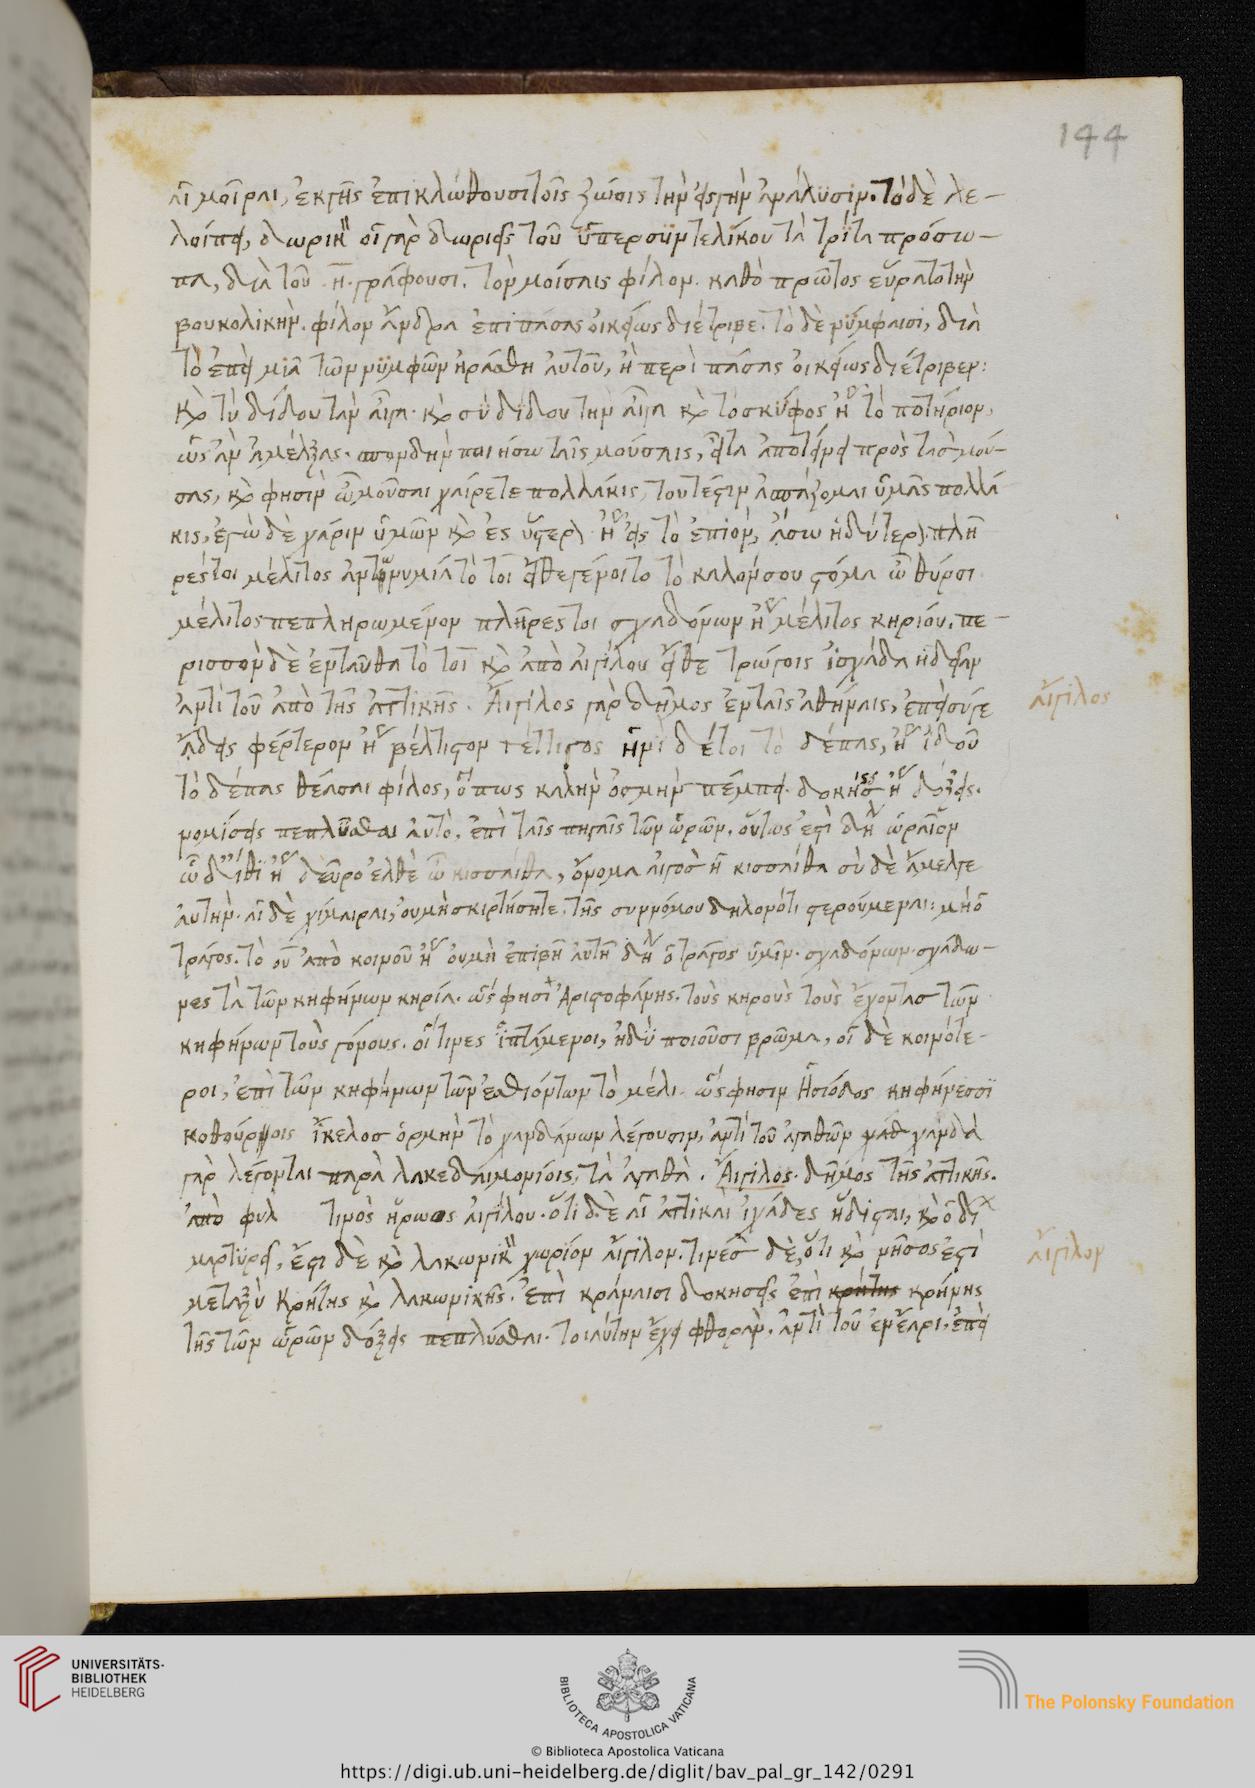 144
αἱ μοῖραι, ἐκ γῆς ἐπικλώθουσι τοῖς ζώοις τὴν εἰς γῆν ἀνάλυσιν. τὸ δὲ λε-
λοίπει, δωρικ οἱ γὰρ δωριεῖς τοῦ ὑπερσυντελίκου τὰ τρίτα πρόσω-
πα, διὰ τοῦ .η. γράφουσι. τὸν μοίσαις φίλον. καθὸ πρῶτος εὕρατο τὴν
βουκολικὴν. φίλον ἄνδρα ἐπὶ πάσας οἰκείως διέτριβε. τὸ δὲ νύμφαισι, διὰ
τὸ ἐπεὶ μία τῶν νυμφῶν ἠράσθη αὐτοῦ, ἢ περὶ πάσας οἰκείως διέτριβεν:
καὶ τὺ δίδου τὰν αἶγα. καὶ σὺ δίδου τὴν αἶγα καὶ τὸ σκύφος ἤγουν τὸ ποτήριον,
ὡς ἂν ἀμέλξας. σπονδὴν ποιήσω ταῖς μούσαις, εἶτα ἀποτείνει πρὸς τὰς μού-
σας, καὶ φησὶν ὦ μοῦσαι χαίρετε πολλάκις, τουτέστιν ἀσπάζομαι ὑμᾶς πολλά
κις, ἐγὼ δὲ χάριν ὑμῶν καὶ ἐς ὕστερον ἤγουν εἰς τὸ ἐπιὸν, ἄσω ἡδύτερον. πλη
ρές τοι μέλιτος ἀντωνυμία τὸ τοι εἴθε γένοιτο τὸ καλόν σου στόμα ὦ θύρσι
μέλιτος πεπληρωμένον πλῆρες τοι σχαδόνων ἤγουν μέλιτος κηρίου. πε-
ρισσὸν δὲ ἐνταῦθα τὸ τοὶ καὶ ἀπὸ αἰγίλου εἴθε τρώγοις ἰσχάδα ἡδεῖαν
ἀντὶ τοῦ ἀπὸ τῆς ἀττικῆς. Αἴγιλος γὰρ δῆμος ἐν ταῖς ἀθήναις, ἐπεὶ σύγε
αἴγιλος
ἄδεις φέρτερον ἤγουν βέλτιστον τέττιγος ἠνὶ δέ τοι τὸ δέπας, ἤγουν ἰδοῦ
τὸ δέπας θέασαι φίλος, ὅπως καλὴν ὀσμὴν πέμπει. δοκήσεις ἤγουν δόξεις.
νομίσεις πεπλύσθαι αὐτὸ, ἐπὶ ταῖς πηγαῖς τῶν ὡρῶν. οὕτως ἐστὶ δηλ ὡραῖον
ὧδ' ἴθι ἤγουν δεῦρο ἐλθὲ ὦ κισσαίθα, ὄνομα αἰγὸς ἡ κισσαίθα σὺ δὲ ἄμελγε
αὐτὴν. αἱ δὲ χίμαιραι, οὐ μὴ σκιρτήσητε. τῆς συννόμου δηλονότι στερούμεναι: μὴ ὁ
τράγος. τὸ οὐ ἀπὸ κοινοῦ ἤγουν οὐ μὴ ἐπιβῆ αὐτῆ δηλ ὁ τράγος ὑμῖν. σχαδόνων. σχάδω-
νες τὰ τῶν κηφήνων κηρία. ὥς φησι Ἀριστοφάνης. τοὺς κηροὺς τοὺς ἔχοντας τῶν
κηφήνων τοὺς γόνους. οἵτινες ἱπτάμενοι, ἡδὺ ποιοῦσι βρῶμα, οἱ δὲ κοινότε-
ροι, ἐπὶ τῶν κηφήνων τῶν ἐσθιόντων τὸ μέλι. ὥς φησιν Ἡσιόδος κηφήνεσσι
κοθούροις ἴκελος ὁρμὴν τὸ χανδάνων λέγουσιν, ἀντὶ τοῦ ἀγαθῶν χανδὰ
γὰρ λέγονται παρὰ λακεδαιμονίοις, τὰ ἀγαθὰ. Αἴγιλος. δῆμος τῆς ἀττικῆς.
ἀπὸ φυλ τινὸς ἥρωος αἰγίλου. ὅτι δὲ αἱ ἀττικαὶ ἰσχάδες ἥδισται, καὶ ὁ δι
μαρτυρεῖ, ἔστι δὲ καὶ λακωνικ χωρίον αἴγιλον. τινὲς δὲ, ὅτι καὶ νῆσος ἐστὶ
αἴγιλον
μεταξὺ Κρήτης καὶ λακωνικῆς. ἐπὶ κράναισι δοκησεῖς ἐπὶ κρήτης κρήνης
τῆς τῶν ὡρῶν δόξεις πεπλύσθαι. τοιαύτην ἔχει φθορὰν. ἀντὶ τοῦ ἐν ἔαρι, ἐπεὶ
UNIVERSITÄTS-
BIBLIOTHEK
HEIDELBERG
BIBLIOTECA APOSTOLICA VATICANA
The Polonsky Foundation
© Biblioteca Apostolica Vaticana
https://digi.ub.uni-heidelberg.de/diglit/bav_pal_gr_142/0291